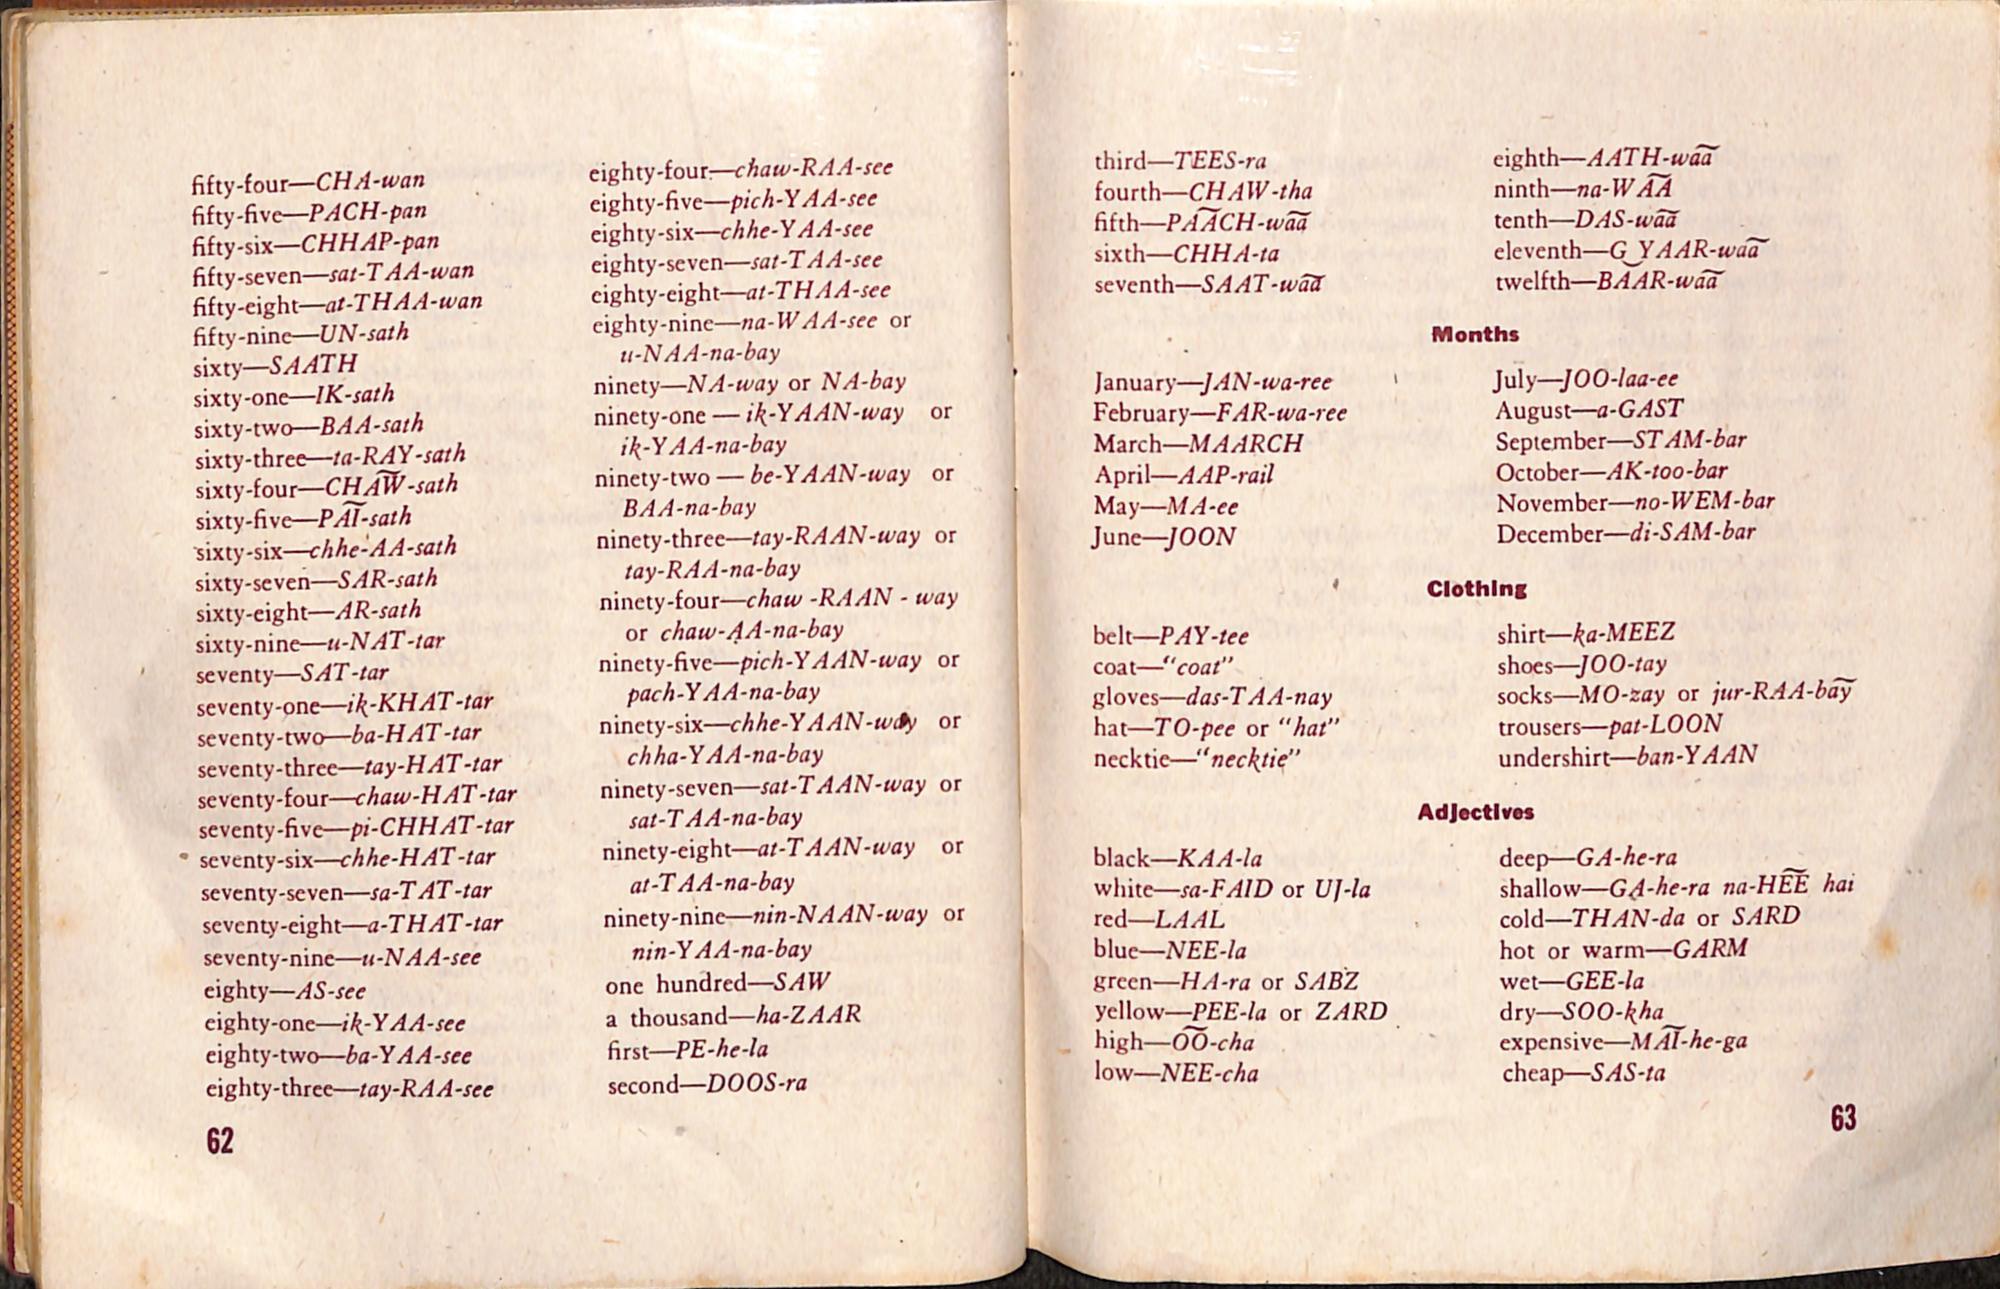 fifty-four—CHA-wan
fifty-five—PACH-pan
fifty-six—CHHAP-pan
fifty-seven—sat-TAA-wan
fifty-eight—at-THAA-wan
fifty-nine—UN-sath
sixty—SAATH
sixty-one—IK-sath
sixty-two—BAA-sath
sixty-three—ta-RAY-sath
sixty-four—CHA͠W-sath
sixty-five—PA͠I-sath
sixty-six—chhe-AA-sath
sixty-seven—SAR-sath
sixty-eight—AR-sath
sixty-nine—u-NAT-tar
seventy—SAT-tar
seventy-one—ik-KHAT-tar
seventy-two—ba-HAT-tar
seventy-three—tay-HAT-tar
seventy-four—chaw-HAT-tar
seventy-five—pi-CHHAT-tar
seventy-six—chhe-HAT-tar
seventy-seven—sa-TAT-tar
seventy-eight—a-THAT-tar
seventy-nine—u-NAA-see
eighty—AS-see
eighty-one—ik-YAA-see
eighty-two—ba-YAA-see
eighty-three—tay-RAA-see
62
eighty-four—chaw-RAA-see
eighty-five—pich-YAA-see
eighty-six—chhe-YAA-see
eighty-seven—sat-TAA-see
eighty-eight—at-THAA-see
eighty-nine—na-WAA-see or
u-NAA-na-bay
ninety—NA-way or NA-bay
ninety-one — ik-YAAN-way or
ik-YAA-na-bay
ninety-two — be-YAAN-way or
BAA-na-bay
ninety-three—tay-RAAN-way or
tay-RAA-na-bay
ninety-four—chaw -RAAN - way
or chaw-AA-na-bay
ninety-five—pich-YAAN-way or
pach-YAA-na-bay
ninety-six—chhe-YAAN-way or
chha-YAA-na-bay
ninety-seven—sat-TAAN-way or
sat-TAA-na-bay
ninety-eight—at-TAAN-way or
at-TAA-na-bay
ninety-nine—nin-NAAN-way or
nin-YAA-na-bay
one hundred—SAW
a thousand—ha-ZAAR
first—PE-he-la
second—DOOS-ra
third—TEES-ra
fourth—CHAW-tha
fifth—PA͠ACH-wa͠a
sixth—CHHA-ta
seventh—SAAT-wa͠a
eighth—AATH-wa͠a
ninth—na-WA͠A
tenth—DAS-wa͠a
eleventh—G‿YAAR-wa͠a
twelfth—BAAR-wa͠a
Months
January—JAN-wa-ree
February—FAR-wa-ree
March—MAARCH
April—AAP-rail
May—MA-ee
June—JOON
July—JOO-laa-ee
August—a-GAST
September—STAM-bar
October—AK-too-bar
November—no-WEM-bar
December—di-SAM-bar
Clothing
belt—PAY-tee
coat—"coat"
gloves—das-TAA-nay
hat—TO-pee or "hat"
necktie—"necktie"
shirt—ka-MEEZ
shoes—JOO-tay
socks—MO-zay or jur-RAA-ba͠y
trousers—pat-LOON
undershirt—ban-YAAN
Adjectives
black—KAA-la
white—sa-FAID or UJ-la
red—LAAL
blue—NEE-la
green—HA-ra or SABZ
yellow—PEE-la or ZARD
high—O͠O-cha
low—NEE-cha
deep—GA-he-ra
shallow—GA-he-ra na-HE͠E hai
cold—THAN-da or SARD
hot or warm—GARM
wet—GEE-la
dry—SOO-kha
expensive—MA͠I-he-ga
cheap—SAS-ta
63